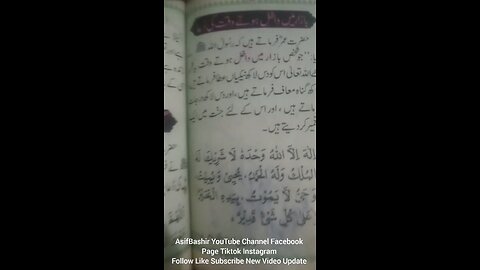 بازار میں داخل ہوتے وقت کی
حضرت عمرؓ فرماتے ہیں کہ رسول اللہ ﷺ
"جو شخص بازار میں داخل ہوتے وقت یہ
اللہ تعالیٰ اس کو دس لاکھ نیکیاں عطا فرماتے
کھ گناہ معاف فرماتے ہیں، اور دس لاکھ
ماتے ہیں، اور اس کے لئے جنت میں
تعمیر کر دیتے ہیں۔
اِلٰهَ اِلَّا اللّٰهُ وَحْدَهٗ لَا شَرِيْكَ لَهٗ
الْمُلْكُ وَلَهُ الْحَمْدُ، يُحْيِيْ وَيُمِيْتُ
وَ حَيٌّ لَّا يَمُوْتُ، بِيَدِهِ الْخَيْرُ
عَلٰى كُلِّ شَيْءٍ قَدِيْرٌ،
AsifBashir YouTube Channel Facebook
Page Tiktok Instagram
Follow Like Subscribe New Video Update